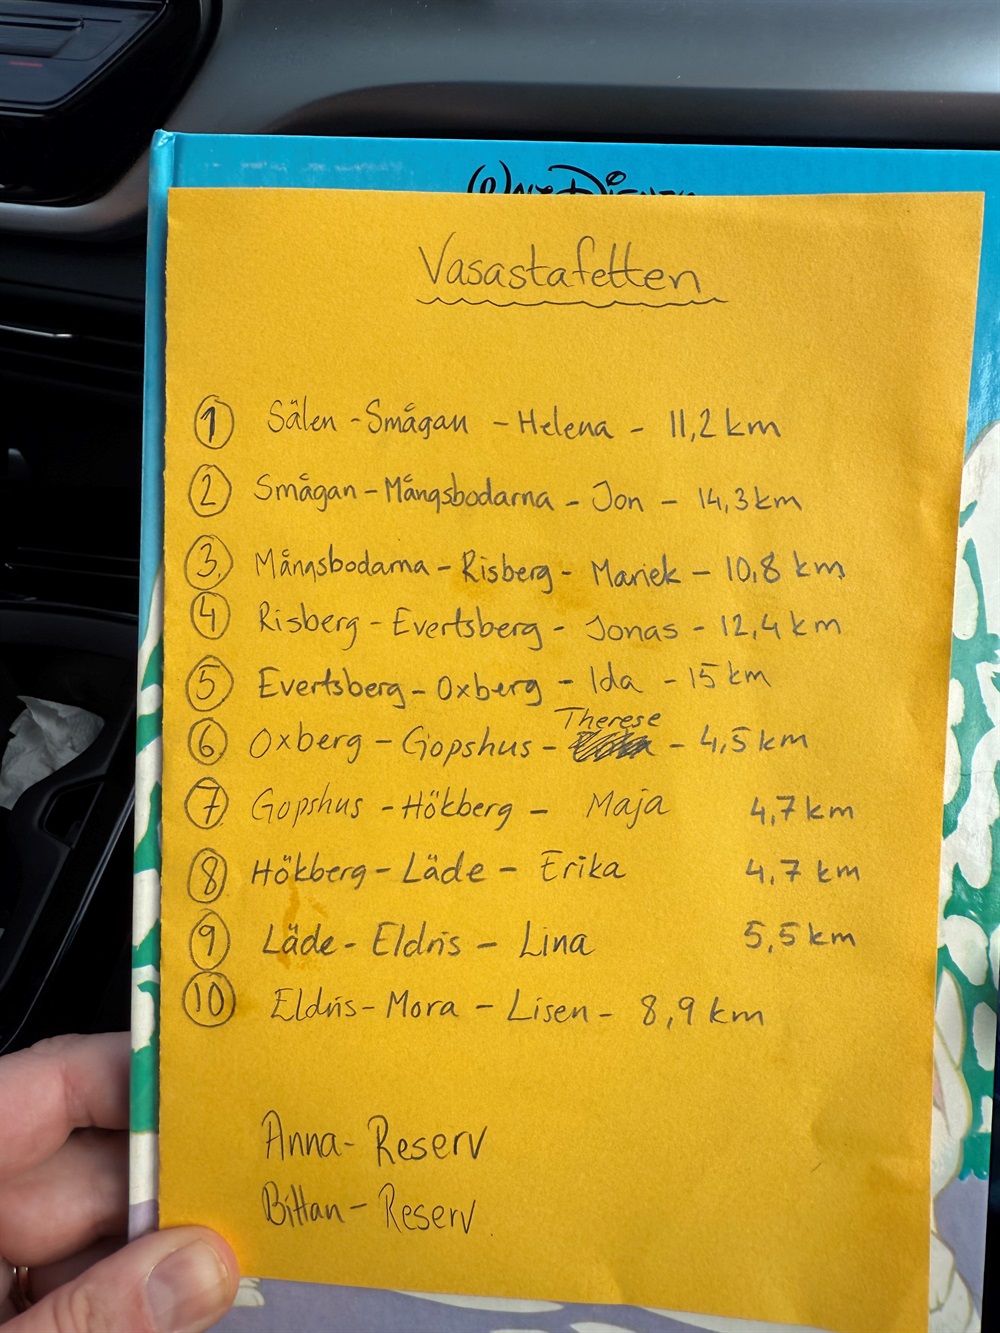 Walt Disney
Vasastafetten
1 Sälen - Smågan - Helena - 11,2 km
2 Smågan - Mångsbodarna - Jon - 14,3 km
3. Mångsbodarna - Risberg - Mariek - 10,8 km
4 Risberg - Evertsberg - Jonas - 12,4 km
5 Evertsberg - Oxberg - Ida - 15 km
Therese
6. Oxberg - Gopshus - - 4,5 km
7. Gopshus - Hökberg - Maja 4,7 km
8 Hökberg - Läde - Erika 4,7 km
9 Läde - Eldris - Lina 5,5 km
10 Eldris - Mora - Lisen - 8,9 km
Anna - Reserv
Bittan - Reserv